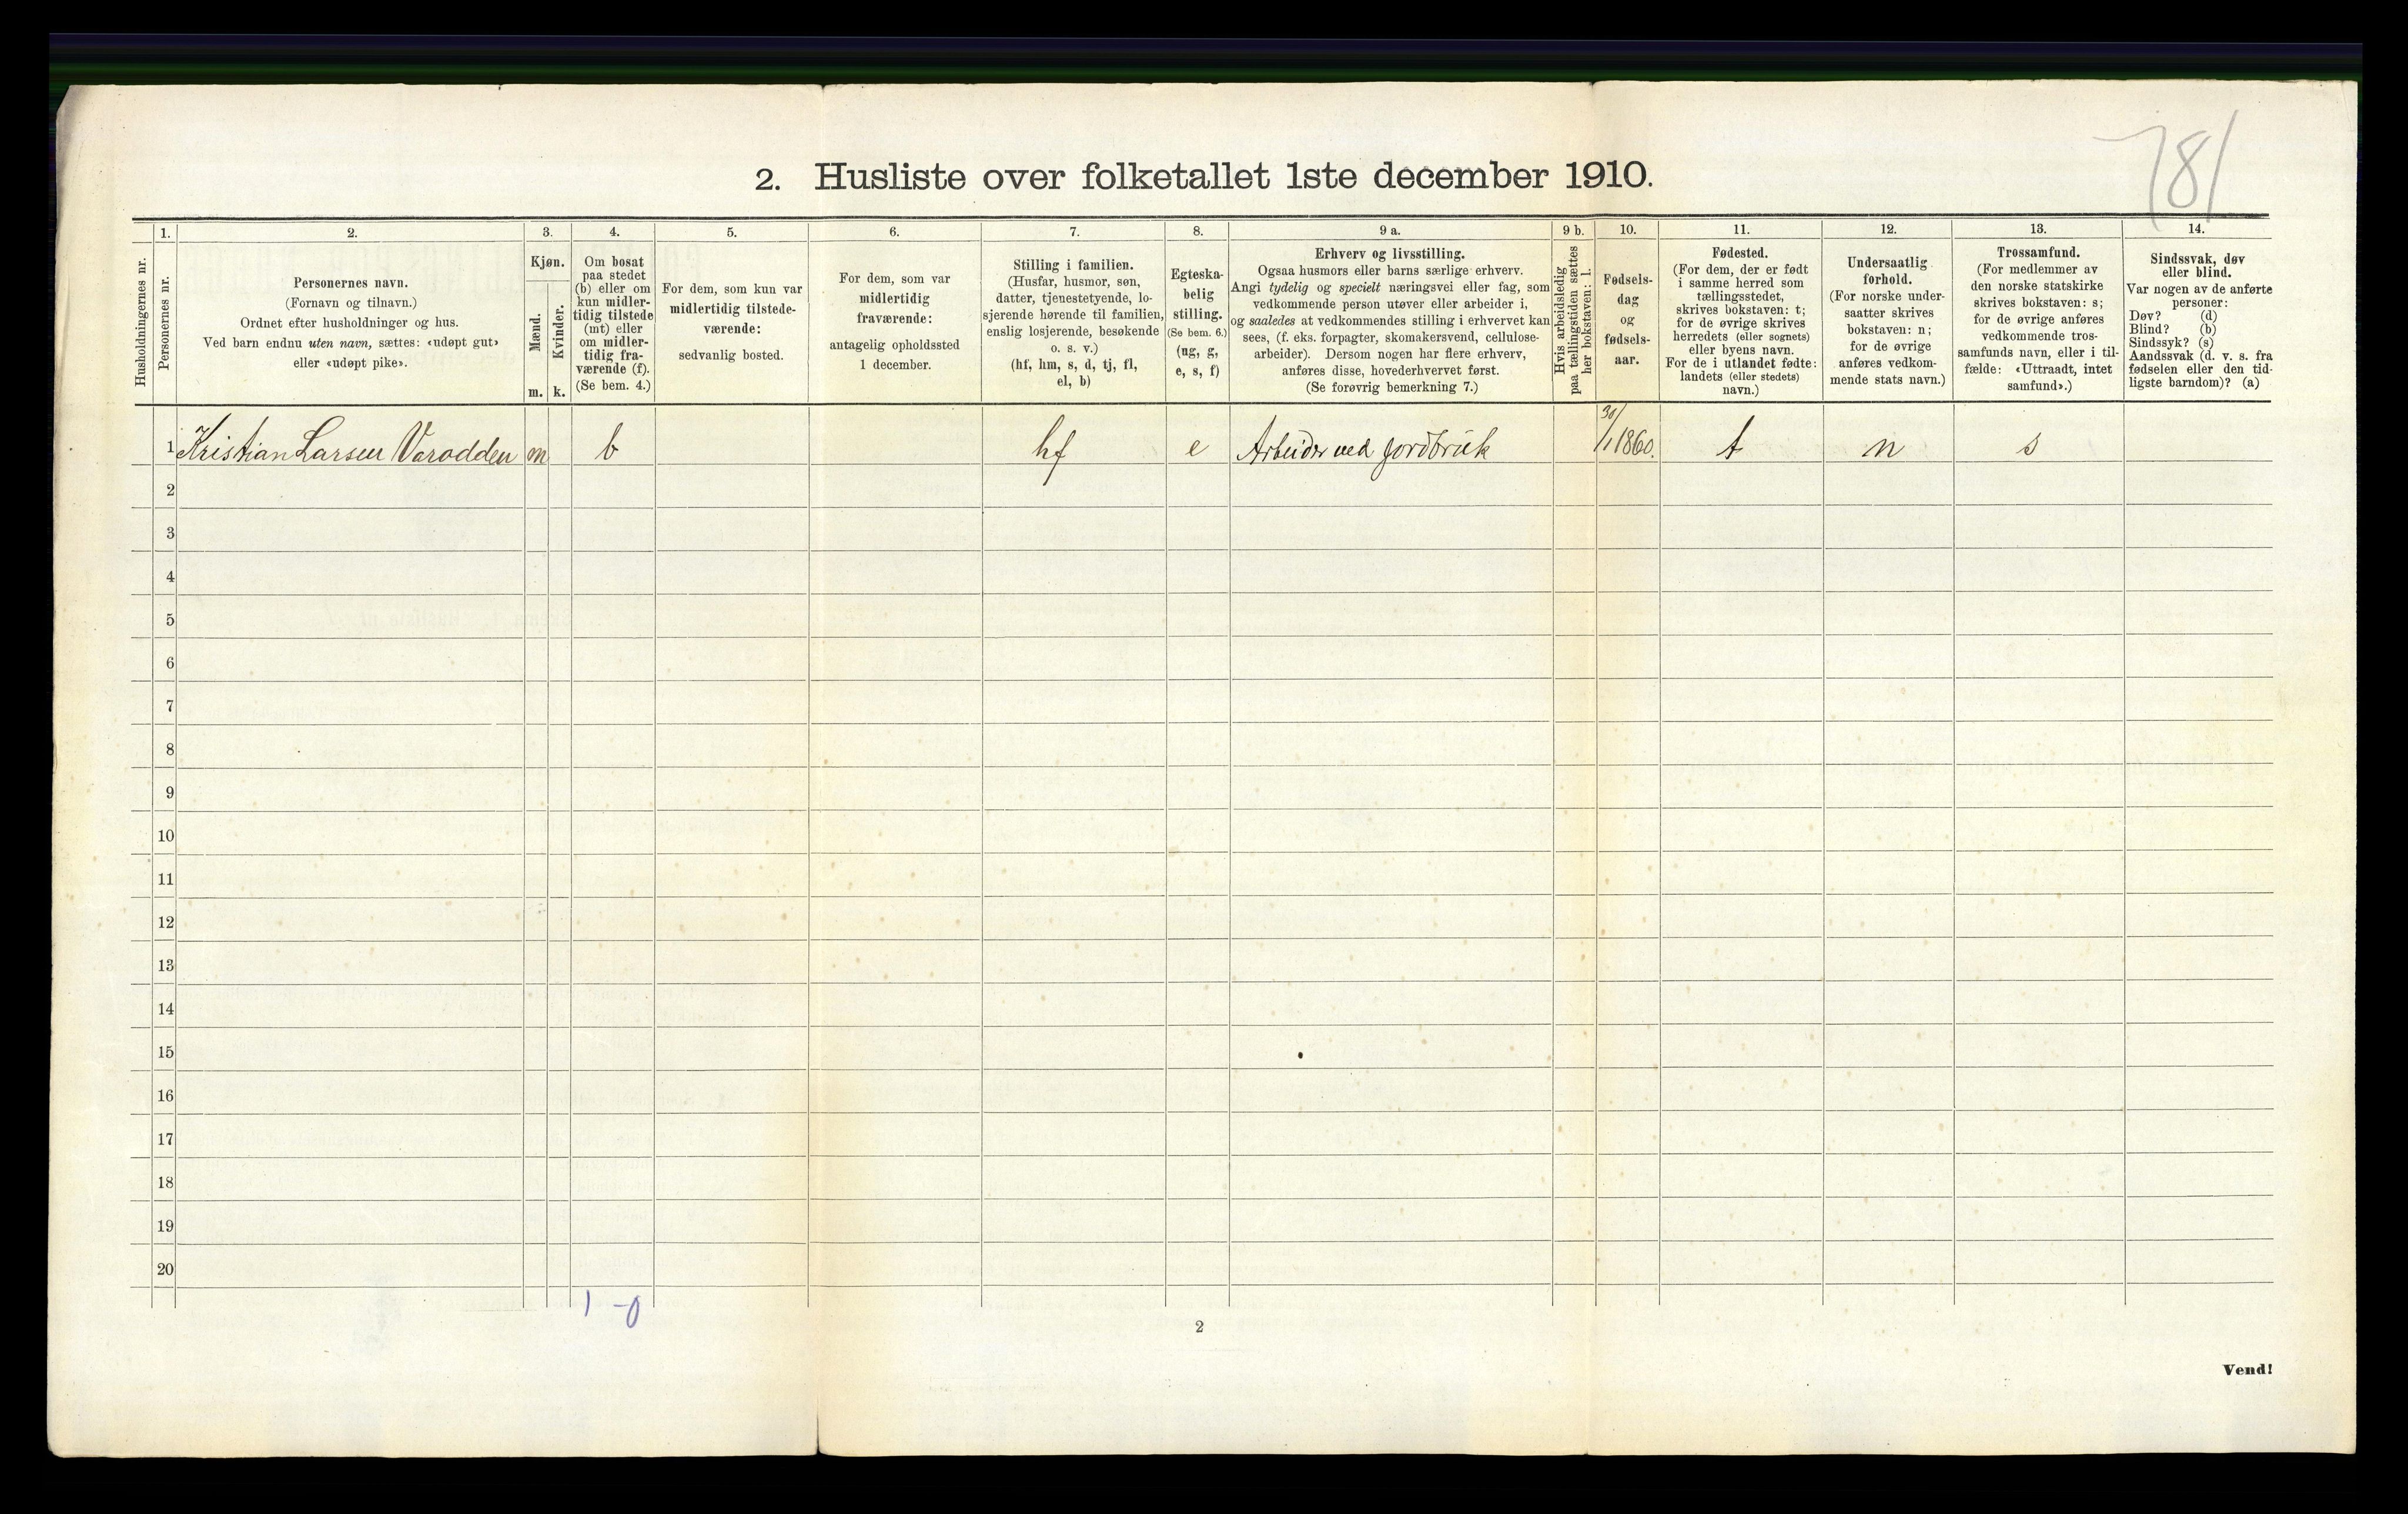 781
2. Husliste over folketallet 1ste december 1910.
Husholdningernes nr.
1.
Personernes nr.
2.
Personernes navn.
(Fornavn og tilnavn.)
Ordnet efter husholdninger og hus.
Ved barn endnu uten navn, sættes: «udøpt gut»
eller «udøpt pike».
3.
Kjøn.
Mænd.
m.
Kvinder.
k.
4.
Om bosat
paa stedet
(b) eller om
kun midler-
tidig tilstede
(mt) eller
om midler-
tidig fra-
værende (f).
(Se bem. 4.)
5.
For dem, som kun var
midlertidig tilstede-
værende:
sedvanlig bosted.
6.
For dem, som var
midlertidig
fraværende:
antagelig opholdssted
1 december.
7.
Stilling i familien.
(Husfar, husmor, søn,
datter, tjenestetyende, lo-
sjerende hørende til familien,
enslig losjerende, besøkende
o. s. v.)
(hf, hm, s, d, tj, fl,
el, b)
8.
Egteska-
belig
stilling.
(Se bem. 6.)
(ug, g,
e, s, f)
9 a.
Erhverv og livsstilling.
Ogsaa husmors eller barns særlige erhverv.
Angi tydelig og specielt næringsvei eller fag, som
vedkommende person utøver eller arbeider i,
og saaledes at vedkommendes stilling i erhvervet kan
sees, (f. eks. forpagter, skomakersvend, cellulose-
arbeider). Dersom nogen har flere erhverv,
anføres disse, hovederhvervet først.
(Se forøvrig bemerkning 7.)
9 b.
Hvis arbeidsledig
paa tællingstiden sættes
her bokstaven: l.
10.
Fødsels-
dag
og
fødsels-
aar.
11.
Fødested.
(For dem, der er født
i samme herred som
tællingsstedet,
skrives bokstaven: t;
for de øvrige skrives
herredets (eller sognets)
eller byens navn.
For de i utlandet fødte:
landets (eller stedets)
navn.)
12.
Undersaatlig
forhold.
(For norske under-
saatter skrives
bokstaven: n;
for de øvrige
anføres vedkom-
mende stats navn.)
13.
Trossamfund.
(For medlemmer av
den norske statskirke
skrives bokstaven: s;
for de øvrige anføres
vedkommende tros-
samfunds navn, eller i til-
fælde: «Uttraadt, intet
samfund».)
14.
Sindssvak, døv
eller blind.
Var nogen av de anførte
personer:
Døv? (d)
Blind? (b)
Sindssyk? (s)
Aandssvak (d. v. s. fra
fødselen eller den tid-
ligste barndom)? (a)
1 Kristian Larsen Varodden m b hf e Arbeider ved Jordbruk 30/1 1860. t n s
2
3
4
5
6
7
8
9
10
11
12
13
14
15
16
17
18
19
20
1 - 0
2
Vend!